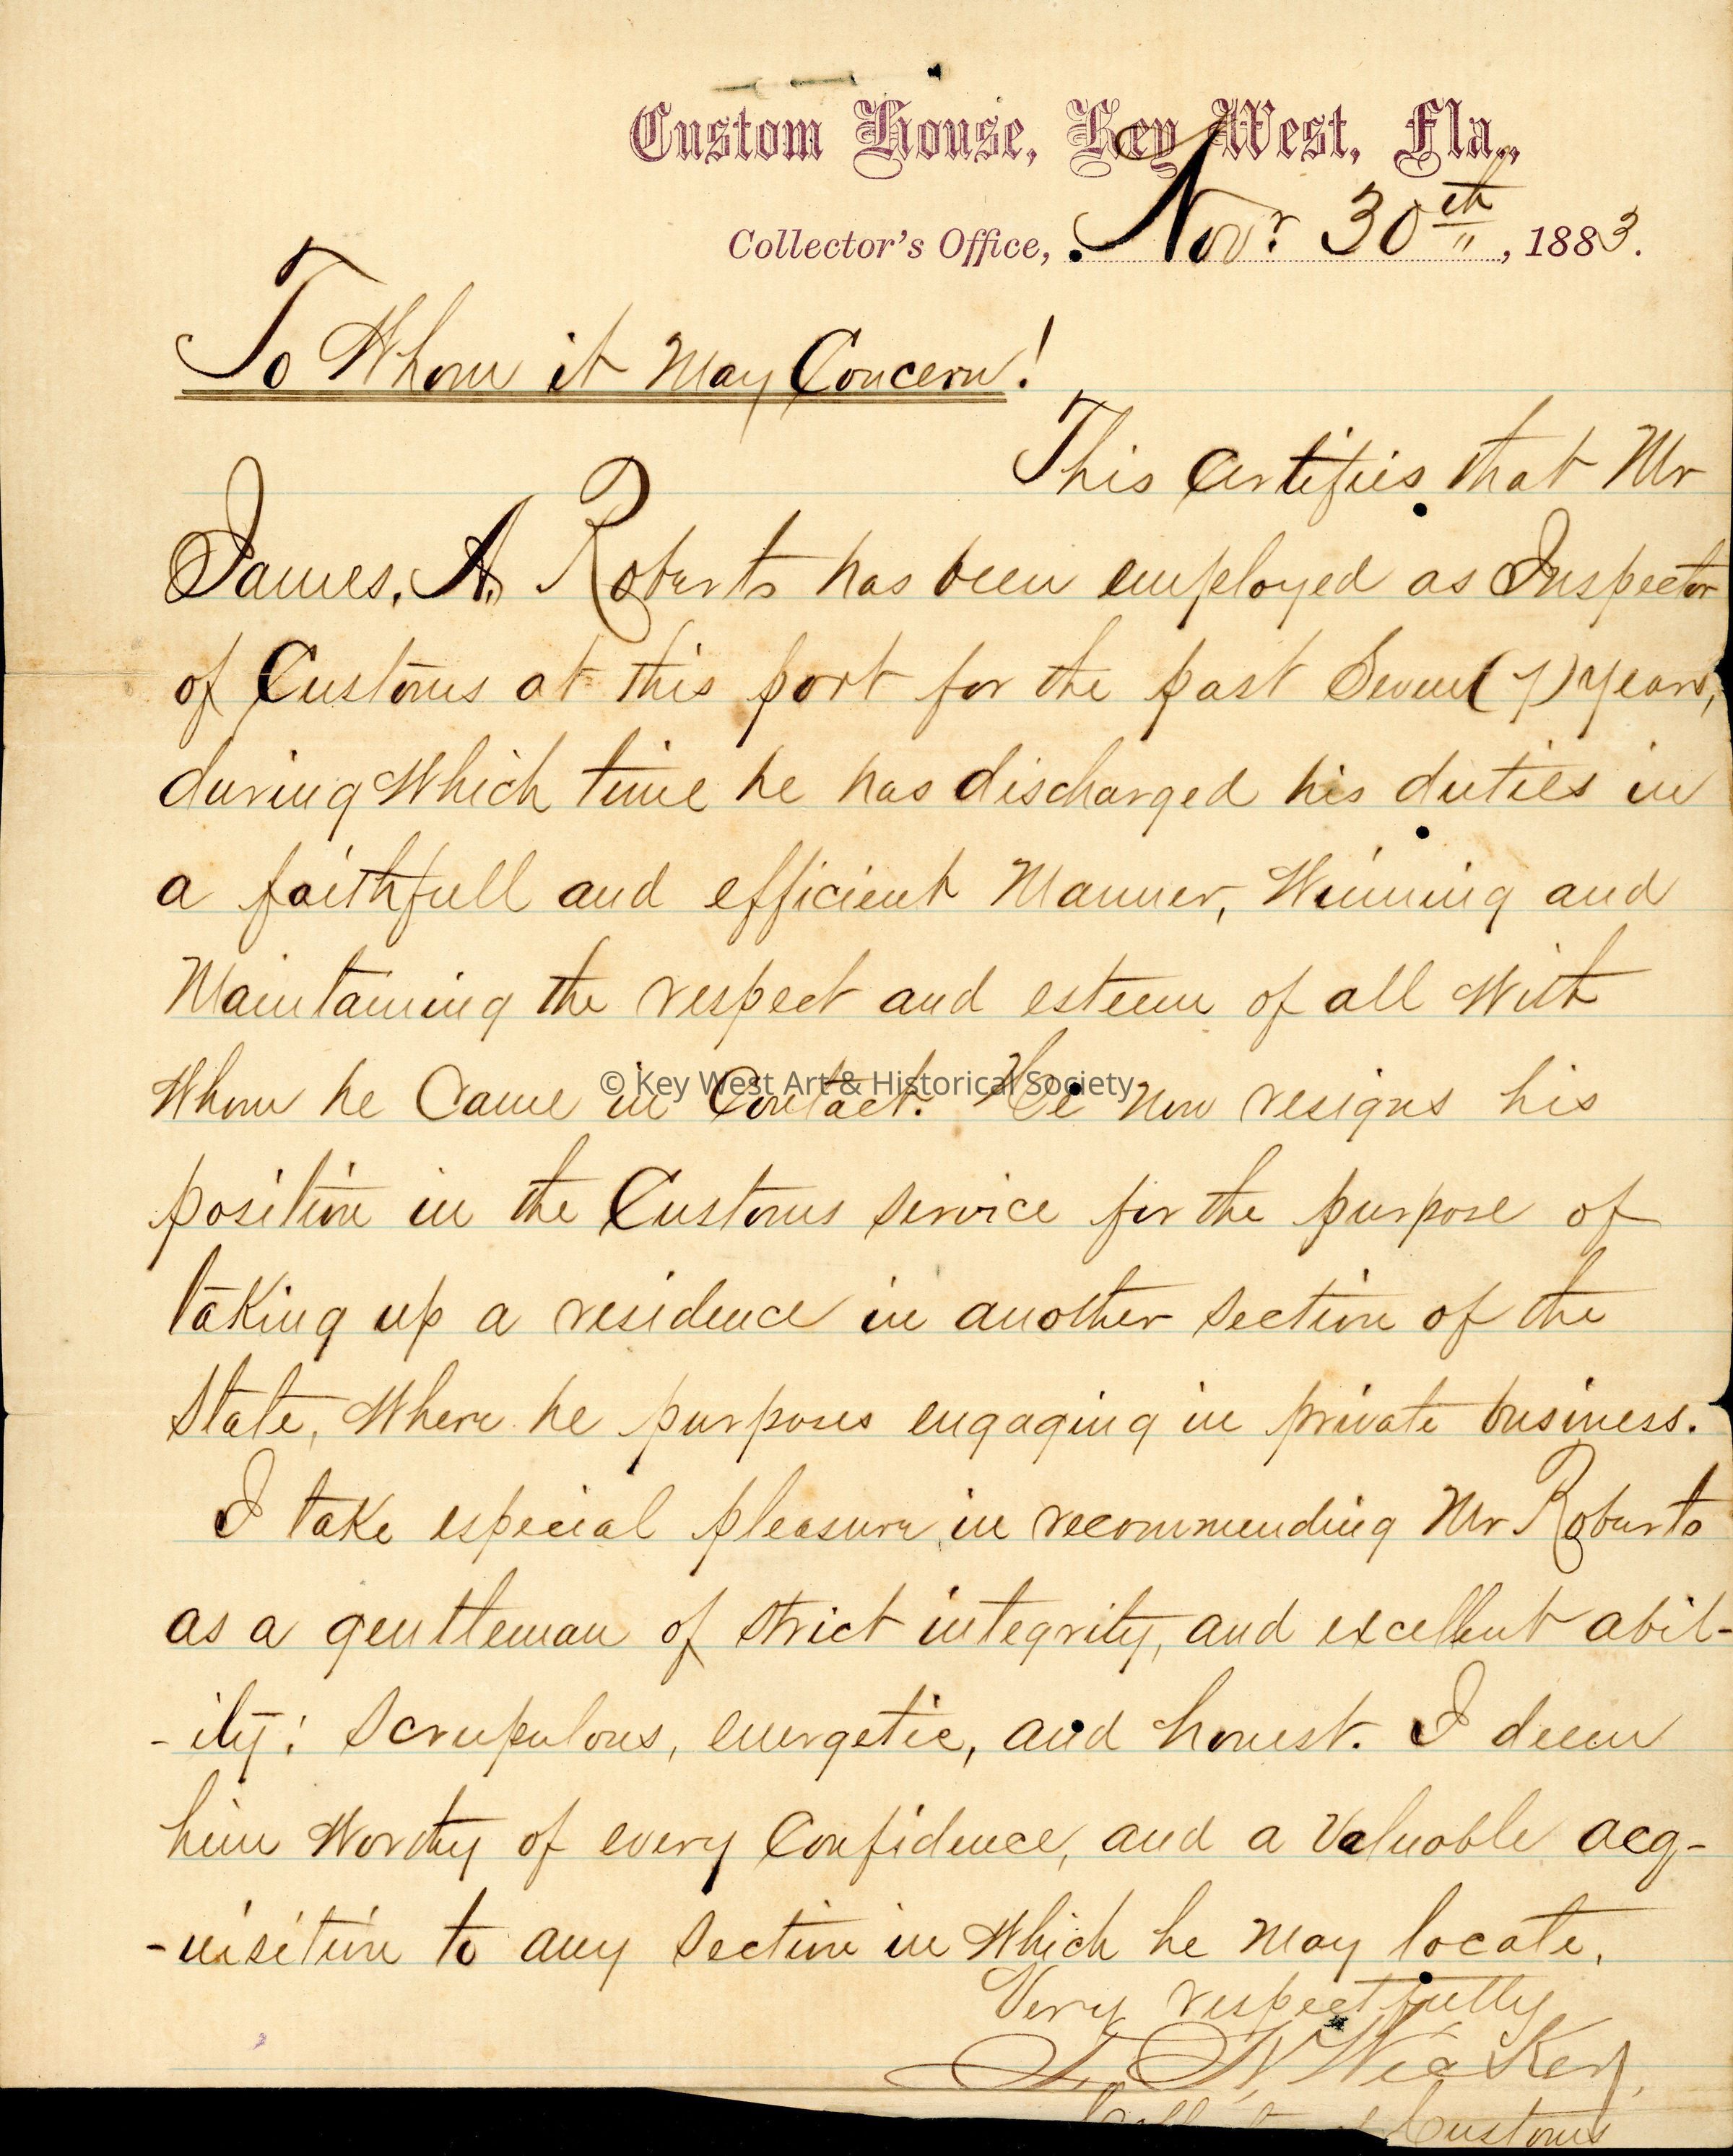 Custom House, Key West, Fla.,
Collector's Office, Novr 30th, 1883.
To Whom it May Concern!
This Certifies that Mr
James. A. Roberts has been employed as Inspector
of Customs at this port for the past Seven (7) years,
during Which time he has discharged his duties in
a faithfull and efficient Manner, Winning and
Maintaining the respect and esteem of all With
Whom he Came in Contact. He now resigns his
© Key West Art & Historical Society
position in the Customs service for the purpose of
taking up a residence in another section of the
State, Where he purposes engaging in private business.
I take especial pleasure in recommending Mr Roberts
as a gentleman of strict integrity, and excellent abil-
-ity: scrupulous, energetic, and honest. I deem
him Worthy of every Confidence, and a Valuable acq-
-uisition to any section in Which he may locate.
Very respectfully
F. N. Wicker,
Customs